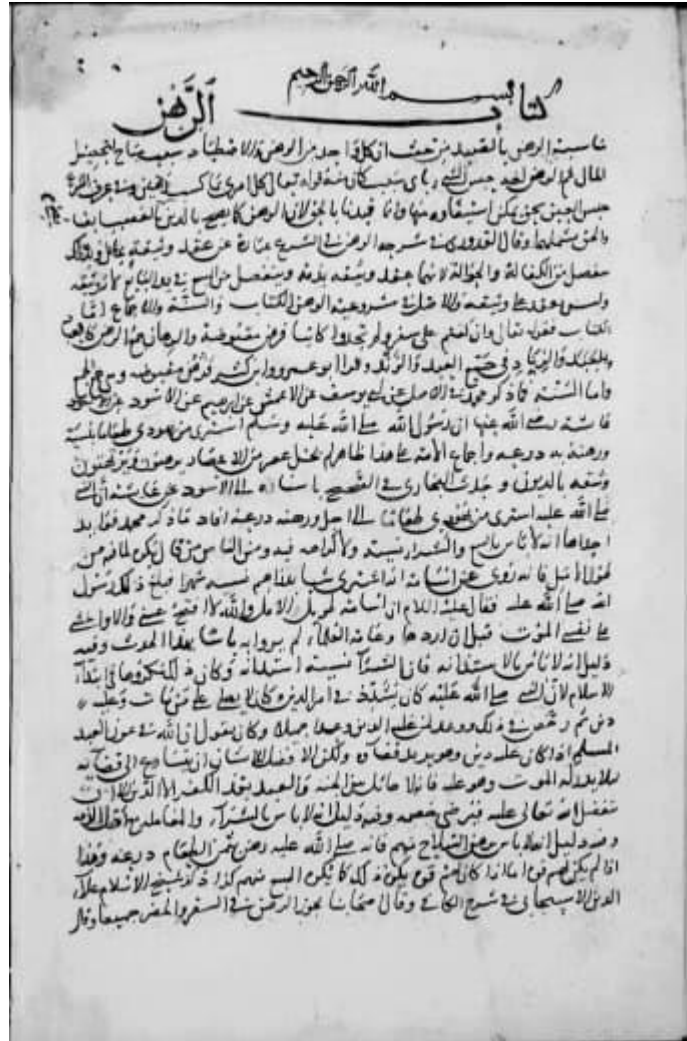 بسم الله الرحمن الرحيم
كتاب الرهن
مناسبة الرهن بالصيد من حيث ان كل واحد من الرهن والاصطياد سبب مباح لتحصيل
المال ثم الرهن لغة حبس الشيء باي سبب كان منه قوله تعالى كل امرئ بما كسب رهين وفي عرف الشرع
حبس العين بحق يمكن استيفاؤه منها وانما قيدنا بالحق لان الرهن لا يصح بالدين
وقال القدوري في شرحه الرهن في الشرع عبارة عن عقد وثيقة بمال
ينفصل من الكفالة والحوالة لانهما عقد وثيقة بذمة وينفصل من البيع في يد البائع لانه وثيقة
وليس بعقد على وثيقة والاصل في مشروعية الرهن الكتاب والسنة والاجماع اما
الكتاب فقوله تعالى وان كنتم على سفر ولم تجدوا كاتبا فرهن مقبوضة والرهان جمع الرهن
والعباد في جمع العبد والزند وقرا ابو عمرو وابن كثير فرهن مقبوضة
واما السنة فما ذكر محمد في الاصل عن ابي يوسف عن الاعمش عن ابرهيم عن الاسود عن
عائشة رضي الله عنها ان رسول الله صلى الله عليه وسلم اشترى من يهودي طعاما بنسية
ورهنه به درعه واجماع الامة على هذا ظاهر لم يخل عصر من الاعصار يرهنون ويرتهنون
وثيقة بالديون وحدث البخاري في الصحيح باسناده الى الاسود عن عائشة ان النبي
صلى الله عليه اشترى من يهودي طعاما الى اجل ورهنه درعه افاد ما ذكر محمد فوايد
احداها انه لا باس بالبيع والشراء نسية ولا كراهة فيه ومن الناس من قال يكره لمخافة من
طول الامل فانه روي عن اسامة انه اشترى شيا نسية شهرا فبلغ ذلك رسول
الله صلى الله عليه فقال عليه السلام ان اسامة لطويل الامل والله لا افتح عيني الا واخشى
على نفسي الموت قبل ان اردها وعامة العلماء لم يروا به باسا بهذا الحديث وفيه
دليل انه لا باس بالاستدانة فان الشراء نسية استدانة وكان ذلك مكروها في ابتداء
الاسلام لان النبي صلى الله عليه كان يشدد في امر الدين كان لا يصلي على من مات وعليه
دين ثم رخص في ذلك وكان يقول ان الله في عون العبد
المسلم اذا كان عليه دين وهو يريد قضاه ولكن الافضل للانسان ان يتسارع الى قضائه
ليلا يدركه الموت وهو عليه
الله تعالى عليه فيرضي خصمه وفيه دليل انه لا باس بالشراء والمعاملة مع اهل الذمة
وفيه دليل انه لا باس برهن السلاح منهم فانه صلى الله عليه رهن بثمن الطعام درعه وهذا
اذا لم يكن لهم قوة اما اذا كان لهم قوة يكره ذلك كما يكره البيع منهم كذا ذكر شيخ الاسلام علاء
الدين الاسبيجابي في شرح الكافي وقال اصحابنا يجوز الرهن في السفر والحضر جميعا وقال